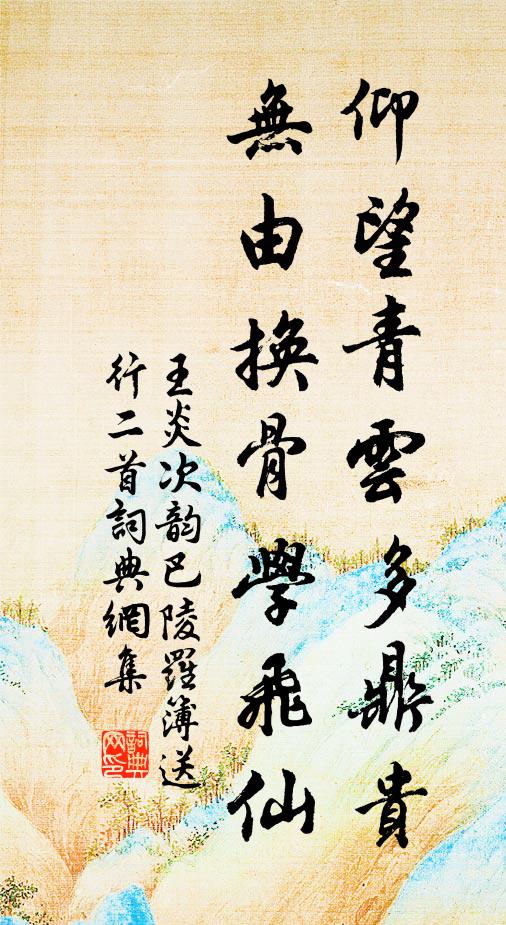 仰望青雲多鼎貴
無由換骨學飛仙
王炎次韵巴陵羅簿送
行二首詞典網集
詞典
网印